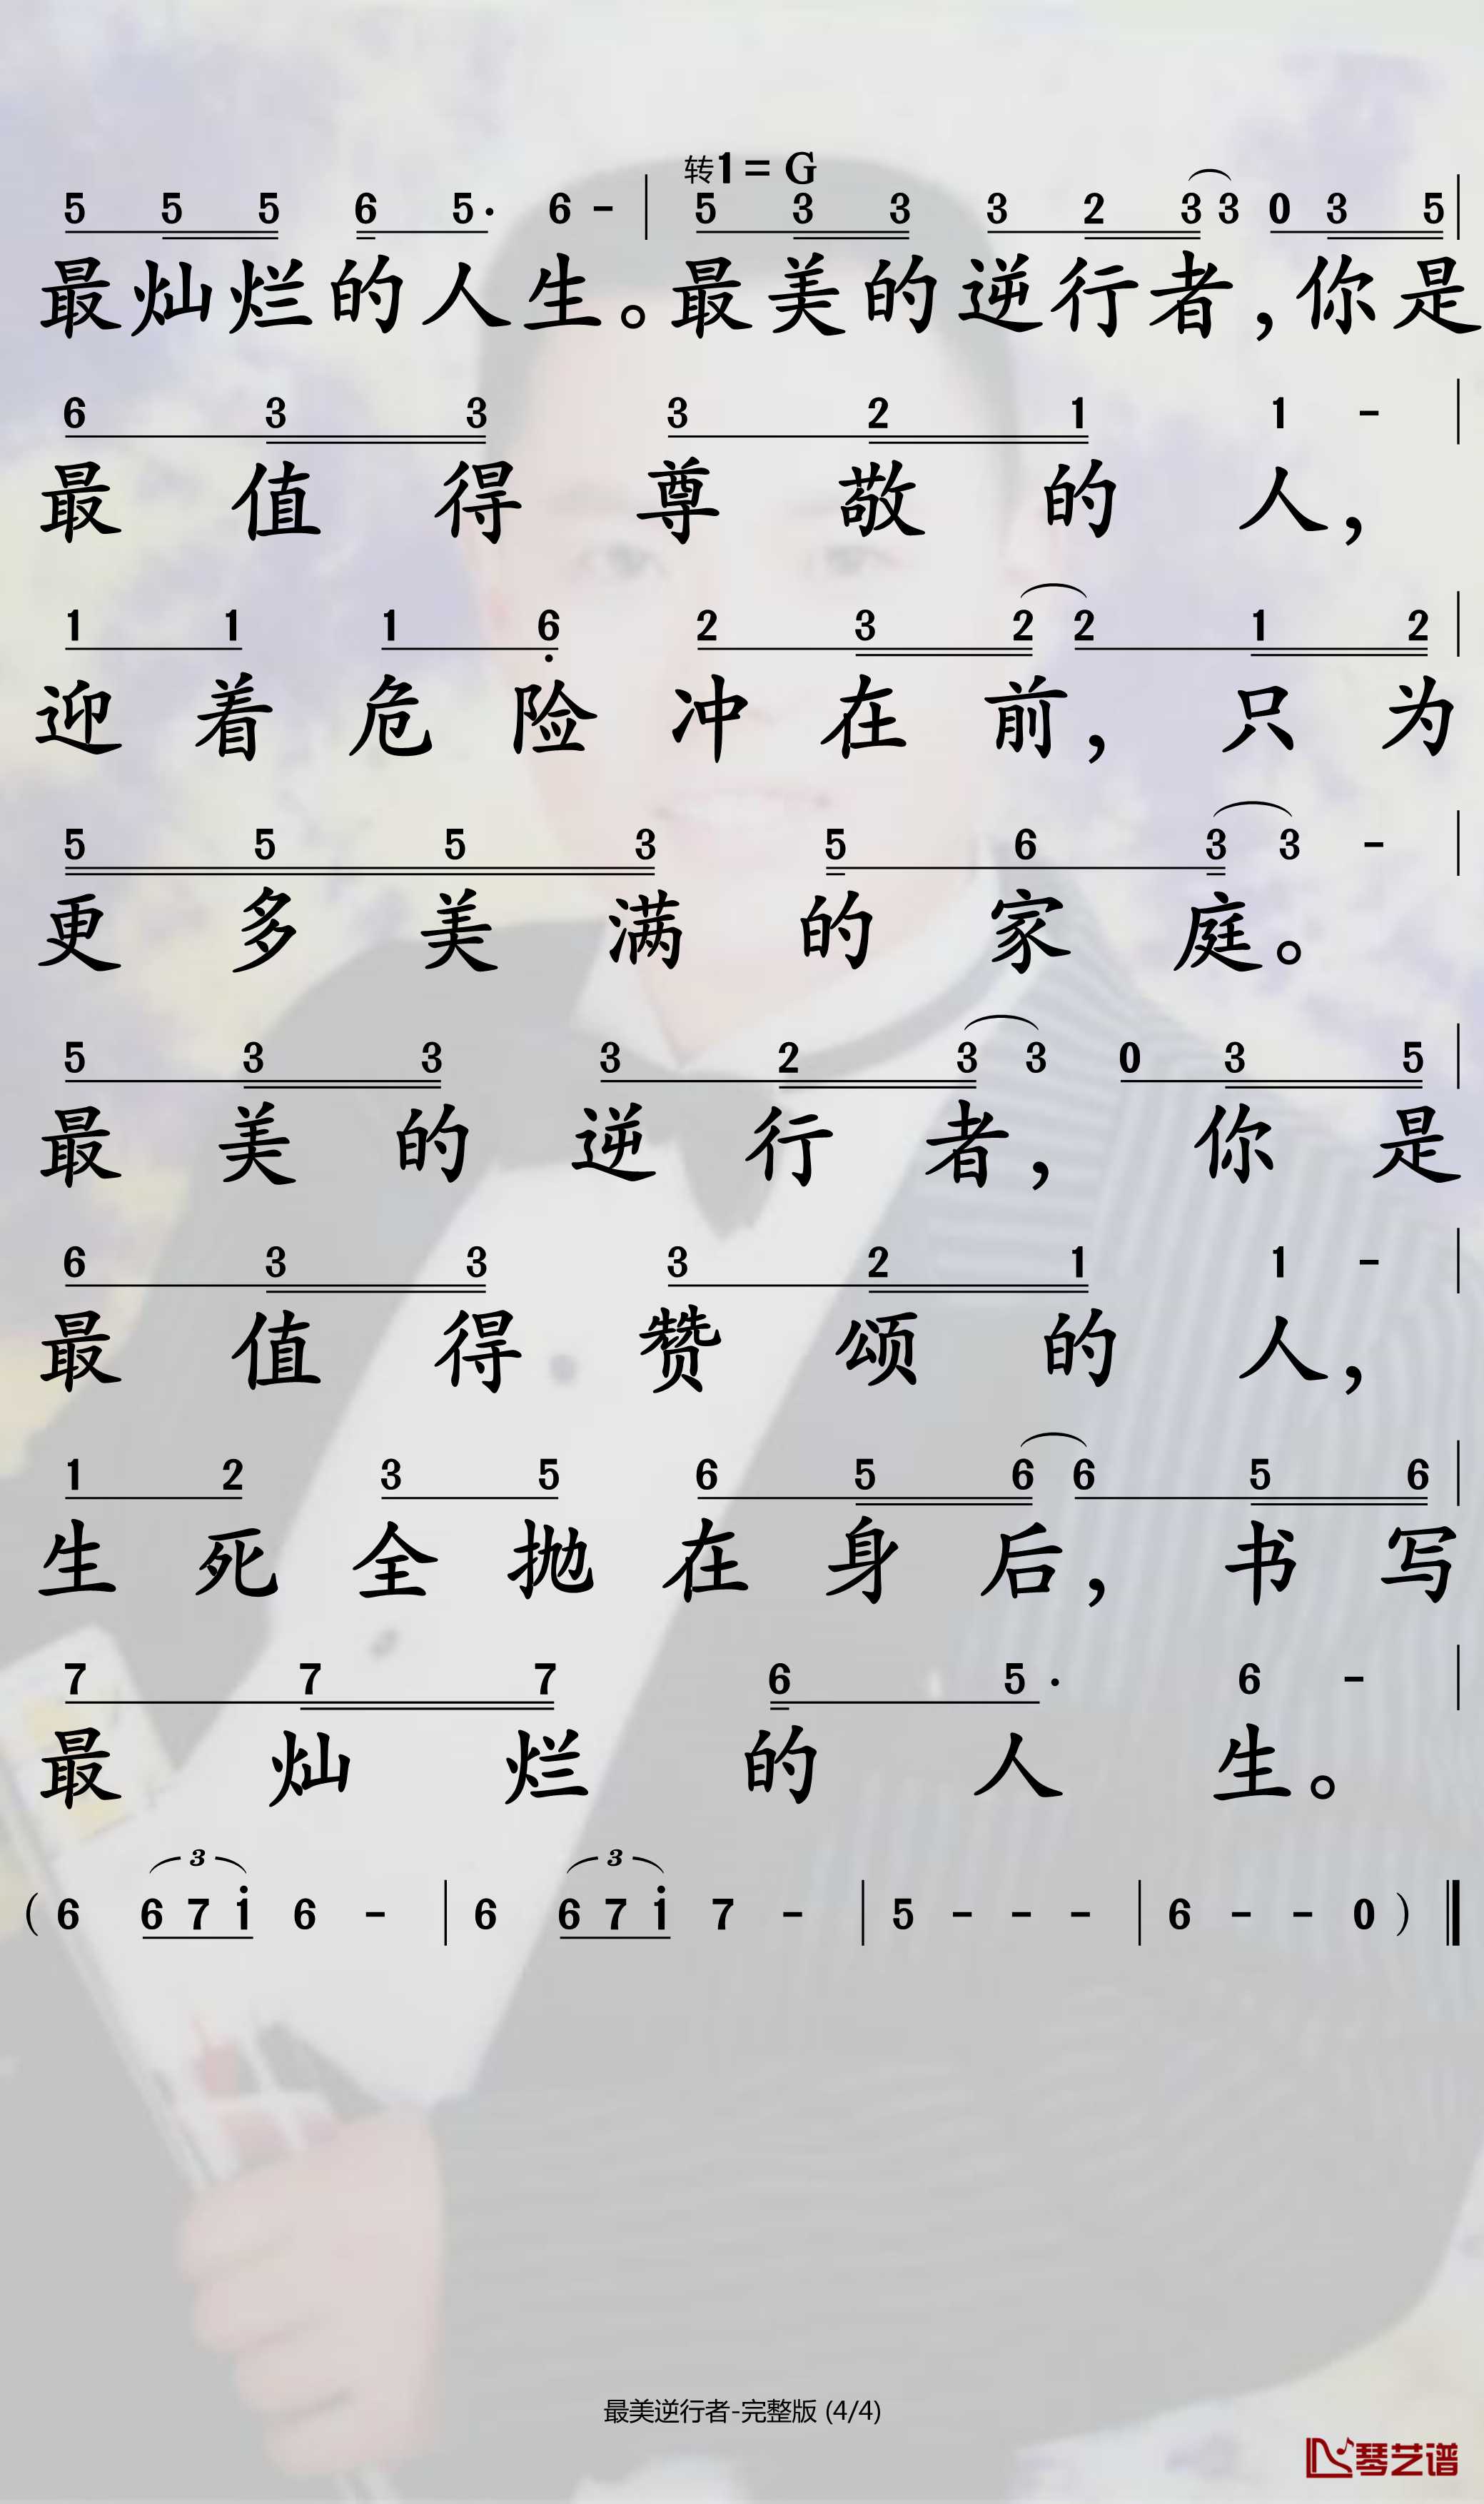 转1=G
5 5 5 6 5· 6 - | 5 3 3 3 2 3 3 0 3 5 |
最灿烂的人生。最美的逆行者,你是
6 3 3 3 2 1 1 - |
最值得尊敬的人,
1 1 1 6̣ 2 3 2 2 1 2 |
迎着危险冲在前,只为
5 5 5 3 5 6 3 3 - |
更多美满的家庭。
5 3 3 3 2 3 3 0 3 5 |
最美的逆行者,你是
6 3 3 3 2 1 1 - |
最值得赞颂的人,
1 2 3 5 6 5 6 6 5 6 |
生死全抛在身后,书写
7 7 7 6 5· 6 - |
最灿烂的人生。
3 3
( 6 6 7 i 6 - | 6 6 7 i 7 - | 5 - - - | 6 - - 0 ) ‖
最美逆行者-完整版 (4/4)
琴艺谱